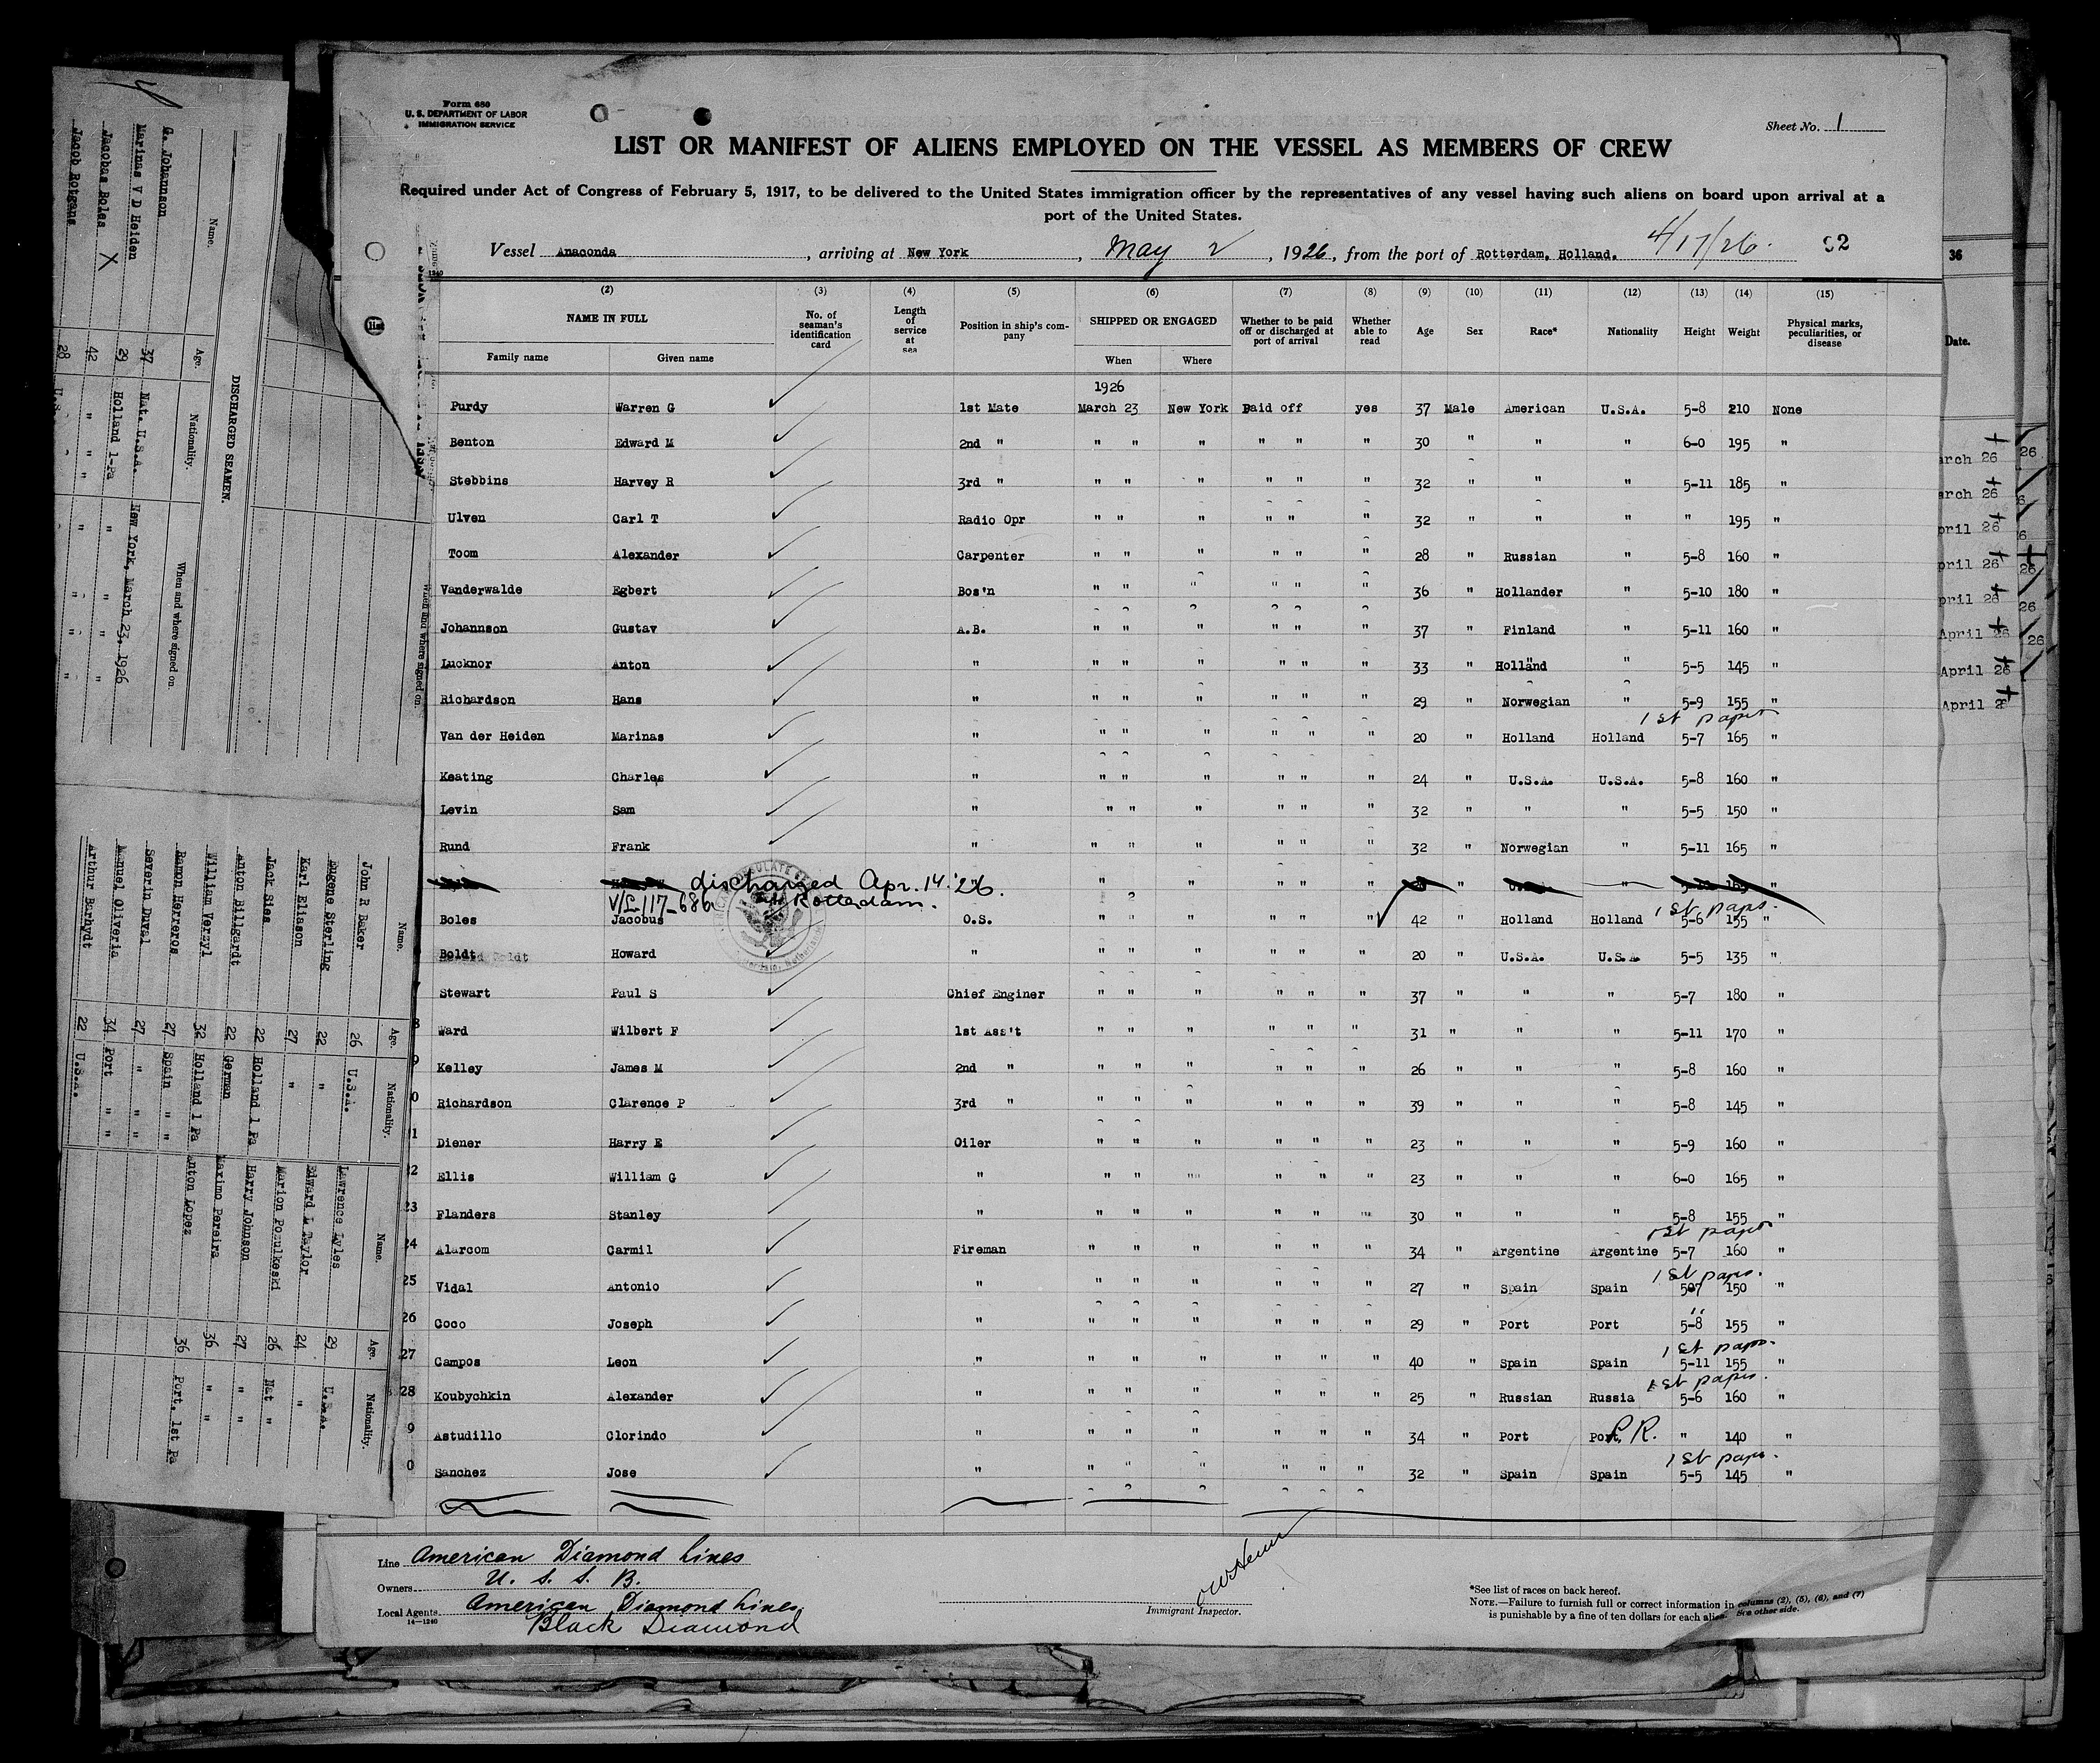 Form 680
U. S. DEPARTMENT OF LABOR
IMMIGRATION SERVICE
Sheet No. 1
LIST OR MANIFEST OF ALIENS EMPLOYED ON THE VESSEL AS MEMBERS OF CREW
Required under Act of Congress of February 5, 1917, to be delivered to the United States immigration officer by the representatives of any vessel having such aliens on board upon arrival at a
port of the United States.
Vessel Anaconda, arriving at New York, May 2, 1926, from the port of Rotterdam, Holland. 4/17/26. 92
(2) (3) (4) (5) (6) (7) (8) (9) (10) (11) (12) (13) (14) (15)
NAME IN FULL No. of seaman's identification card Length of service at sea Position in ship's company SHIPPED OR ENGAGED Whether to be paid off or discharged at port of arrival Whether able to read Age Sex Race* Nationality Height Weight Physical marks, peculiarities, or disease
Family name Given name When Where
1926
Purdy Warren G 1st Mate March 23 New York Paid off yes 37 Male American U.S.A. 5-8 210 None
Benton Edward M 2nd " " " " " " " 30 " " " 6-0 195 "
Stebbins Harvey R 3rd " " " " " " " 32 " " " 5-11 185 "
Ulven Carl T Radio Opr " " " " " " 32 " " " " 195 "
Toom Alexander Carpenter " " " " " " 28 " Russian " 5-8 160 "
Vanderwalde Egbert Bos'n " " " " " " 36 " Hollander " 5-10 180 "
Johannson Gustav A.B. " " " " " " 37 " Finland " 5-11 160 "
Lucknor Anton " " " " " " " 33 " Holland " 5-5 145 "
Richardson Hans " " " " " " " 29 " Norwegian " 5-9 155 "
1st papers
Van der Heiden Marinas " " " " " " " 20 " Holland Holland 5-7 165 "
Keating Charles " " " " " " " 24 " U.S.A. U.S.A. 5-8 160 "
Levin Sam " " " " " " " 32 " " " 5-5 150 "
Rund Frank " " " " " " " 32 " Norwegian " 5-11 165 "
discharged Apr. 14. '26.
V/L 117-686 Rotterdam.
1st paps.
Boles Jacobus O.S. " " " " " " 42 " Holland Holland 5-6 155 "
Boldt Howard " " " " " " " 20 " U.S.A. U.S.A. 5-5 135 "
Stewart Paul S Chief Enginer " " " " " " 37 " " " 5-7 180 "
Ward Wilbert F 1st Ass't " " " " " " 31 " " " 5-11 170 "
Kelley James M 2nd " " " " " " " 26 " " " 5-8 160 "
Richardson Clarence P 3rd " " " " " " " 39 " " " 5-8 145 "
Diener Harry E Oiler " " " " " " 23 " " " 5-9 160 "
22 Ellis William G " " " " " " " 23 " " " 6-0 165 "
23 Flanders Stanley " " " " " " " 30 " " " 5-8 155 "
1st papers
24 Alarcom Carmil Fireman " " " " " " 34 " Argentine Argentine 5-7 160 "
1st paps.
25 Vidal Antonio " " " " " " " 27 " Spain Spain 507 150 "
26 Coco Joseph " " " " " " " 29 " Port Port 5-8 155 "
1st paps.
27 Campos Leon " " " " " " " 40 " Spain Spain 5-11 155 "
1st paps.
28 Koubychkin Alexander " " " " " " " 25 " Russian Russia 5-6 160 "
9 Astudillo Clorindo " " " " " " " 34 " Port Port. P.R. " 140 "
1st paps.
0 Sanchez Jose " " " " " " " 32 " Spain Spain 5-5 145 "
Line American Diamond Lines
Owners U. S. S. B.
Local Agents American Diamond Lines
14-1240
Black Diamond
Immigrant Inspector.
*See list of races on back hereof.
NOTE.—Failure to furnish full or correct information in columns (2), (5), (6), and (7)
is punishable by a fine of ten dollars for each alien. See other side.
DISCHARGED SEAMEN.
Name. Age. Nationality. When and where signed on.
G. Johannson 37 Nat. U.S.A. New York, March 23, 1926
Marinas V D Heiden 29 Holland 1-Pa " "
Jacobas Boles X 42 " " " "
Jacob Rotgans 28 U.S. " "
Name. Age. Nationality. Name. Age. Nationality.
John R Baker 26 U.S.A. Lawrence Lyles 29 U.S.A.
Eugene Sterling 22 " Edward L Taylor 24 "
Karl Eliason 27 " Marion Pozulkeski 26 Nat "
Jack Sies 22 Holland 1 Pa Harry Johnson 27 " "
Anton Billgardt 22 German Maximo Pereira 36 " "
William Verzyl 32 Holland 1 Pa Anton Lopez 36 Port. 1st Pa
Ramon Herreros 27 Spain " "
Severin Duval 27 " " "
Manuel Oliveria 34 Port " "
Arthur Barhydt 22 U.S.A.
36
Date.
arch 26
arch 26
pril 26
pril 26
pril 26
April 26
April 26
April 2